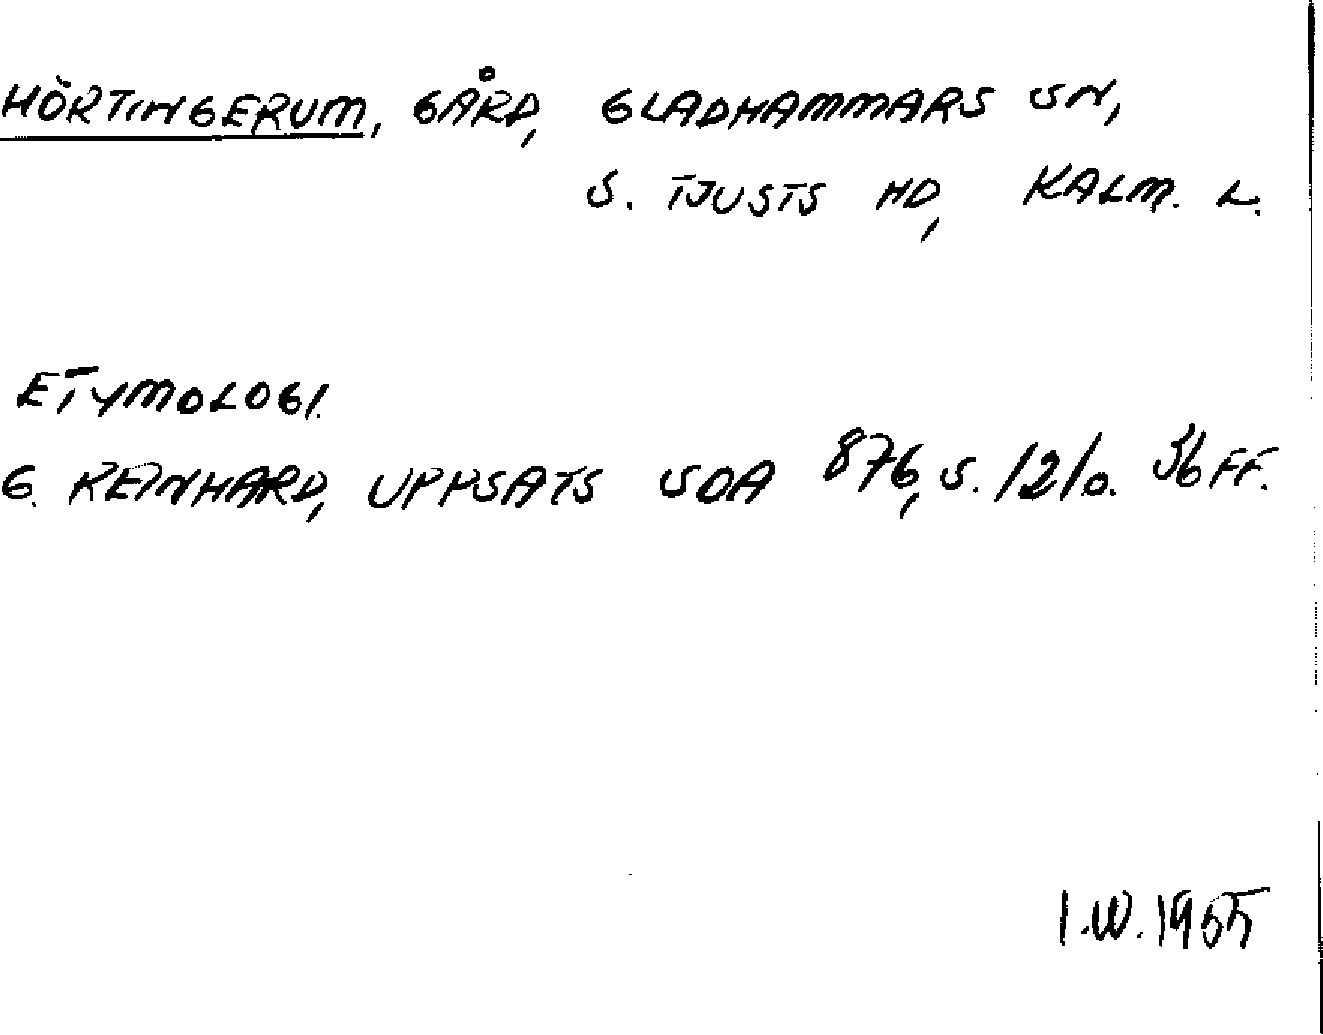 HÖRTINGERUM, GÅRD, GLADHAMMARS SN,
S. TJUSTS HD, KALM. L.
ETYMOLOGI.
G. REINHARD, UPPSATS SOA 876, S. 12 o. 36 FF.
I.W. 1955